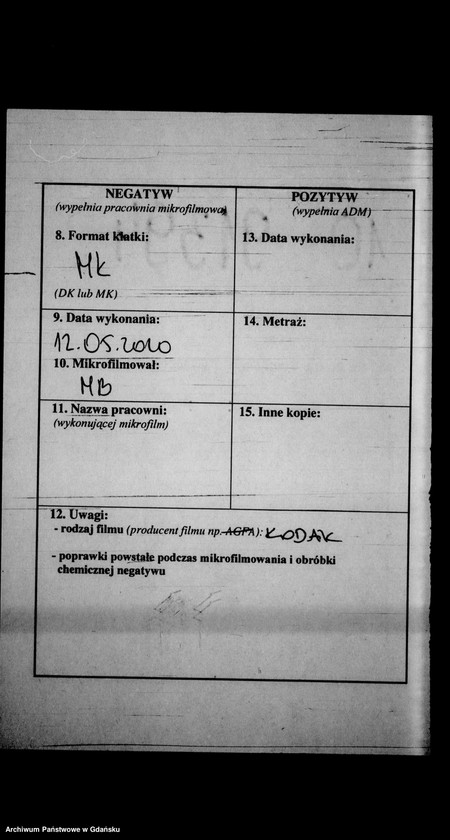 NEGATYW
(wypełnia pracownia mikrofilmowa)
8. Format klatki:
MK
(DK lub MK)
9. Data wykonania:
12.05.2020
10. Mikrofilmował:
MB
11. Nazwa pracowni:
(wykonującej mikrofilm)
POZYTYW
(wypełnia ADM)
13. Data wykonania:
14. Metraż:
15. Inne kopie:
12. Uwagi:
- rodzaj filmu (producent filmu np. AGFA): KODAK
- poprawki powstałe podczas mikrofilmowania i obróbki
chemicznej negatywu
Archiwum Państwowe w Gdańsku